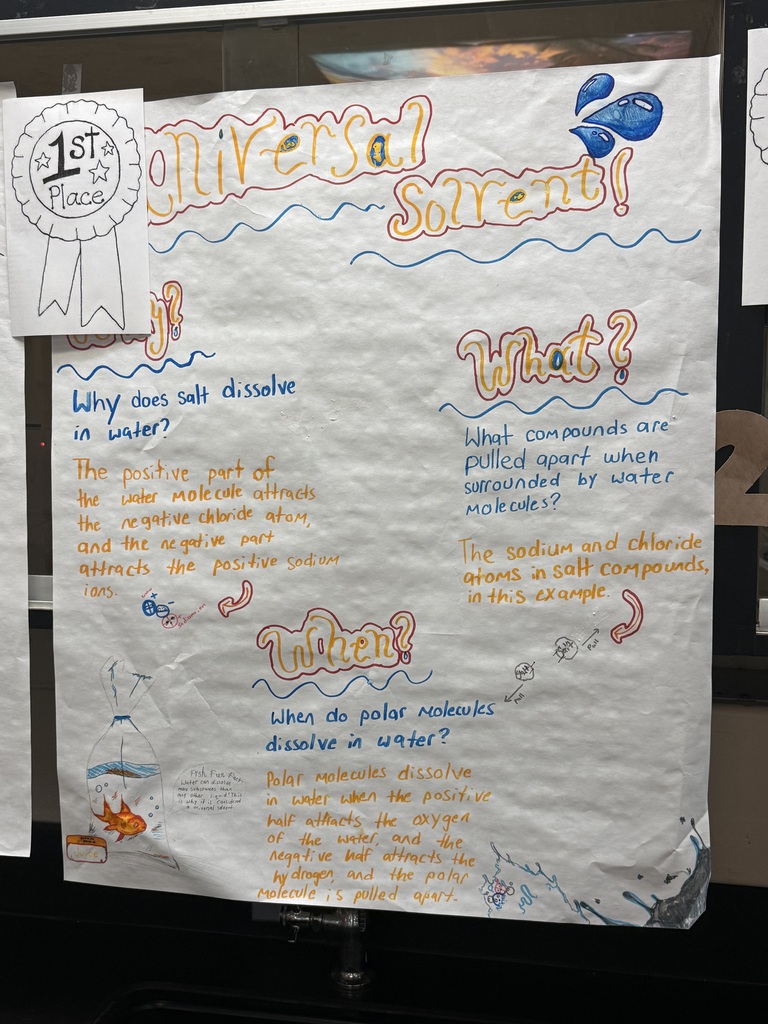 1st
Place
Universal
Solvent!
Why?
Why does salt dissolve
in water?
The positive part of
the water molecule attracts
the negative chloride atom,
and the negative part
attracts the positive sodium
ions.
What?
What compounds are
pulled apart when
surrounded by water
molecules?
The sodium and chloride
atoms in salt compounds,
in this example.
Pull
Pull
When?
When do polar molecules
dissolve in water?
Polar molecules dissolve
in water when the positive
half attracts the oxygen
of the water, and the
negative half attracts the
hydrogen, and the polar
molecule is pulled apart.
Fish Fun Fact:
Water can dissolve
more substances than
any other liquid! This
is why it is considered
a universal solvent.
2